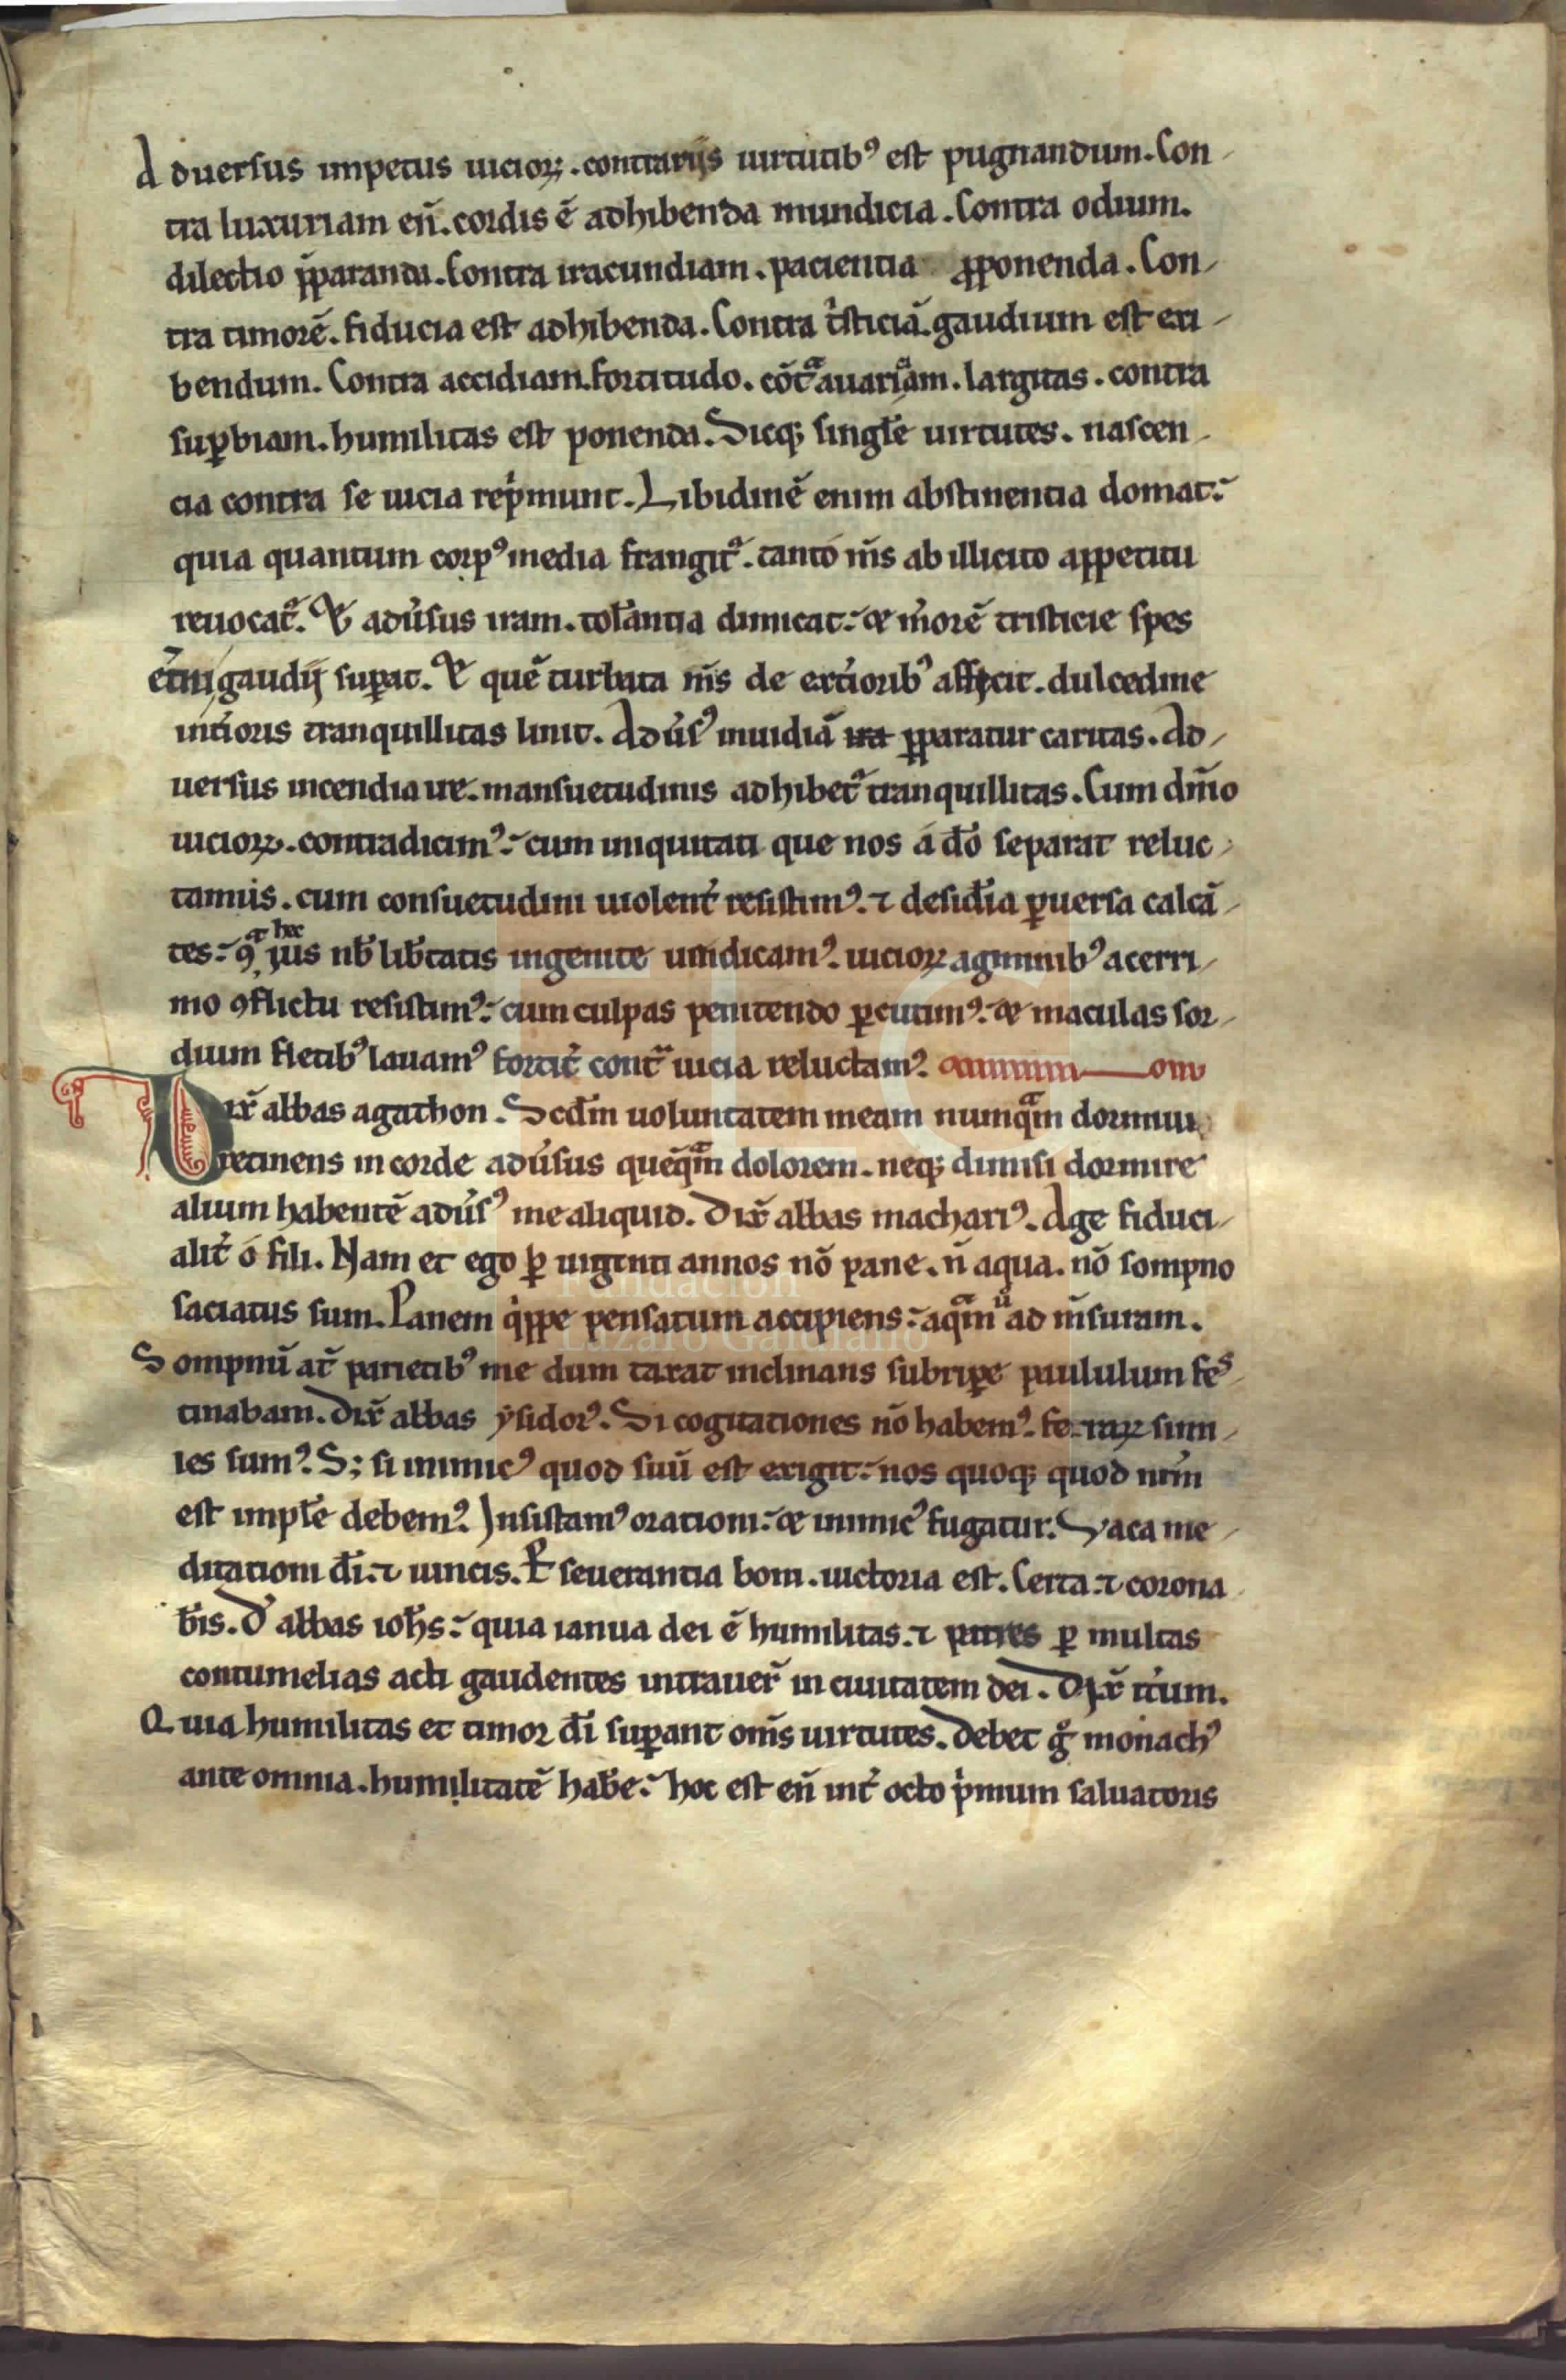 Aduersus impetus uicioꝝ. contrarijs uirtutibꝰ est pugnandum. Con-
tra luxuriam eñ. cordis ē adhibenda mundicia. Contra odium.
dilectio p̄paranda. Contra iracundiam. paciencia p̄ponenda. Con-
tra timorē. fiducia est adhibenda. Contra tͥsticiā. gaudium est exi-
bendum. Contra accidiam. fortitudo. cōtͣ auariciam. largitas. contra
suꝑbiam. humilitas est ponenda. Sicqꝫ singlē uirtutes. nascen-
cia contra se uicia rep̍munt. Libidinē enim abstinentia domat:
quia quantum corpꝰ media frangit᷑. tanto m̄s ab illicito appetitu
reuocat᷑. Et adu̍sus iram. tol̄antia dimicat: et m̍orē tristicie spes
et̄ni gaudij suꝑat. Et quē turbata m̄s de ext̍ioribꝰ afficit. dulcedine
int̍ioris tranquillitas linit. Adu̍sꝰ inuidiā ita p̄paratur caritas. Ad-
uersus incendia ire. mansuetudinis adhibet᷑ tranquillitas. Cum dm̄o
uicioꝝ. contradicimꝰ: cum iniquitati que nos á dō separat reluc-
tamus. cum consuetudini uiolent̍ resistimꝰ. ⁊ desid̄ia ꝑuersa calcā-
et hec
tes: ꝗ ius nb̄ lib̄tatis ingenite uindicamꝰ. uicioꝝ agminibꝰ acerri-
mo ꝯflictu resistimꝰ: cum culpas penitendo ꝑcutimꝰ: et maculas sor-
dium fletibꝰ lauamꝰ fortit̍ contͣ uicia reluctamꝰ.
Dix̄ abbas agathon. Scdm̄ uoluntatem meam numqͣm dormiui
retinens in corde adu̍sus quēqͣm dolorem. neqꝫ dimisi dormire
alium habentē adu̍sꝰ me aliquid. Dix̄ abbas machariꝰ. Age fiduci-
alit̍ ó fili. Nam et ego ꝑ uiginti annos nō pane. ñ aqua. nō sompno
saciatus sum. Panem qͥppe pensatum accipiens: aqͣm ů ad m̄suram.
Sompnū at᷑ parietibꝰ me dum taxat inclinans subripe paululum fes-
tinabam. Dix̄ abbas ẏsidorꝰ. Si cogitationes nō habemꝰ. feraꝝ simi-
les sumꝰ. Sꝫ si inimicꝰ quod suū est exigit: nos quoqꝫ quod nrm̄
est impl̄e debemꝰ. Insistamꝰ orationi: et inimicꝰ fugatur. Vaca me-
ditationi dī. ⁊ uincis. Perseuerantia boni. uictoria est. Certa. ⁊ corona
b̄is. Dꝰ abbas ioh̄s: quia ianua dei ē humilitas. ⁊ patres ꝑ multas
contumelias acti gaudentes intrauer̄ in ciuitatem dei. Dix̄ it̍um.
Quia humilitas et timor dī suꝑant om̄s uirtutes. Debet gͦ monachꝰ
ante omnia. humilitatē hab̄e: hoc est eñ int̍ octo p̍mum saluatoris
Fundación
Lázaro Galdiano